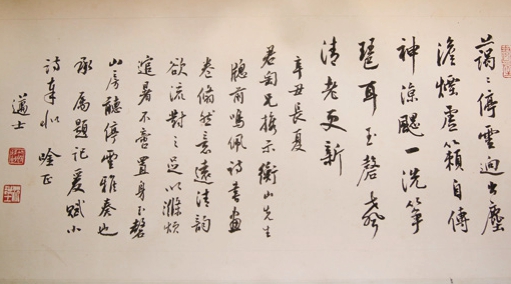 藹〻停雲迥出塵
澹煙虛籟自傳
神涼颸一洗箏
琶耳玉磬聲
清老更新
辛丑長夏
君匋兄示衡山先生
牕前鳴佩詩書畫
卷翛然意遠清韵
欲流對之足以滌煩
逭暑不啻置身玉磬
山房聽停雲雅奏也
承属題記爰賦小
詩奉似 吟正
邁士